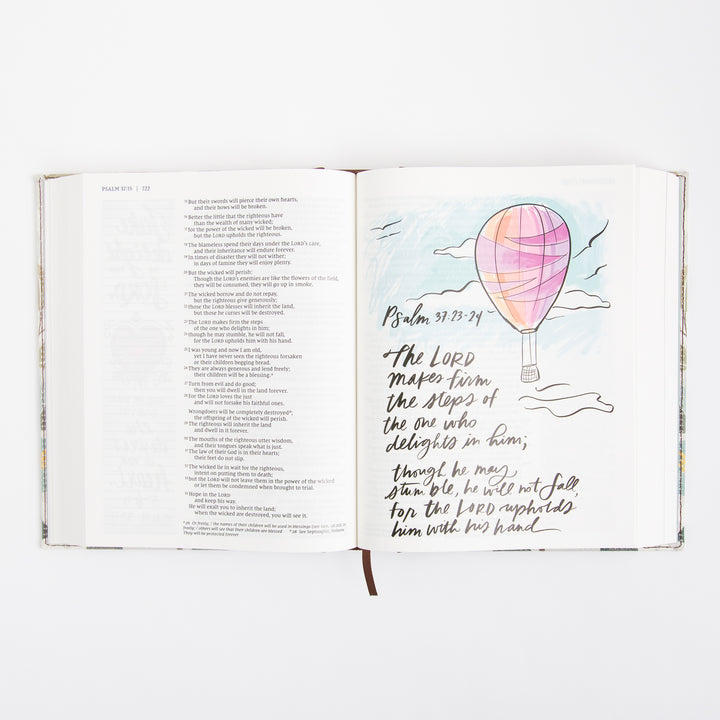 PSALM 37:15 | 722
15 But their swords will pierce their own hearts,
and their bows will be broken.
16 Better the little that the righteous have
than the wealth of many wicked;
17 for the power of the wicked will be broken,
but the LORD upholds the righteous.
18 The blameless spend their days under the LORD's care,
and their inheritance will endure forever.
19 In times of disaster they will not wither;
in days of famine they will enjoy plenty.
20 But the wicked will perish:
Though the LORD's enemies are like the flowers of the field,
they will be consumed, they will go up in smoke.
21 The wicked borrow and do not repay,
but the righteous give generously;
22 those the LORD blesses will inherit the land,
but those he curses will be destroyed.
23 The LORD makes firm the steps
of the one who delights in him;
24 though he may stumble, he will not fall,
for the LORD upholds him with his hand.
25 I was young and now I am old,
yet I have never seen the righteous forsaken
or their children begging bread.
26 They are always generous and lend freely;
their children will be a blessing.a
27 Turn from evil and do good;
then you will dwell in the land forever.
28 For the LORD loves the just
and will not forsake his faithful ones.
Wrongdoers will be completely destroyedb;
the offspring of the wicked will perish.
29 The righteous will inherit the land
and dwell in it forever.
30 The mouths of the righteous utter wisdom,
and their tongues speak what is just.
31 The law of their God is in their hearts;
their feet do not slip.
32 The wicked lie in wait for the righteous,
intent on putting them to death;
33 but the LORD will not leave them in the power of the wicked
or let them be condemned when brought to trial.
34 Hope in the LORD
and keep his way.
He will exalt you to inherit the land;
when the wicked are destroyed, you will see it.
a 26 Or freely; / the names of their children will be used in blessings (see Gen. 48:20); or
freely; / others will see that their children are blessed b 28 See Septuagint; Hebrew
They will be protected forever
Psalm 37:23-24
The LORD
makes firm
the steps of
the one who
delights in him;
though he may
stumble, he will not fall,
for the LORD upholds
him with his hand